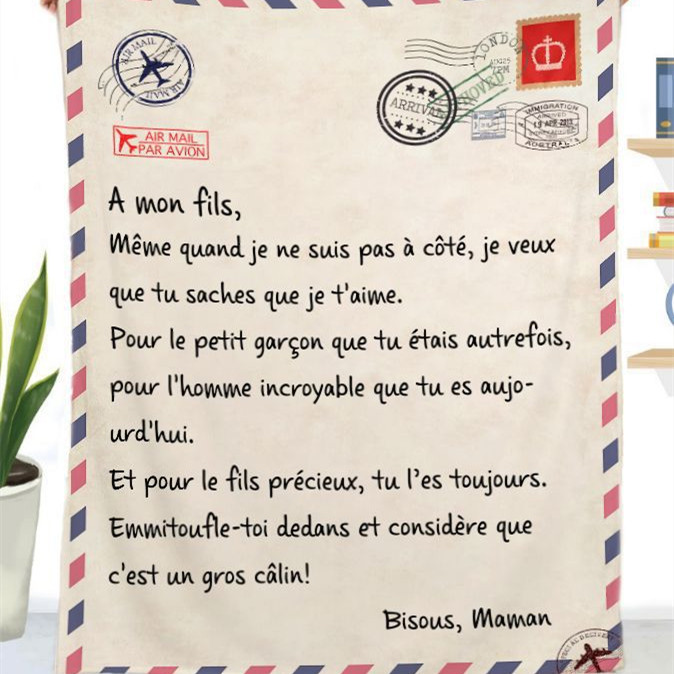 AIR MAIL
AIR MAIL
AIR MAIL
PAR AVION
LONDON
ARRIVAL
IMMIGRATION
ARRIVED
19 APR
AUSTRALIA
A mon fils,
Même quand je ne suis pas à côté, je veux
que tu saches que je t'aime.
Pour le petit garçon que tu étais autrefois,
pour l'homme incroyable que tu es aujo-
urd'hui.
Et pour le fils précieux, tu l'es toujours.
Emmitoufle-toi dedans et considère que
c'est un gros câlin!
Bisous, Maman